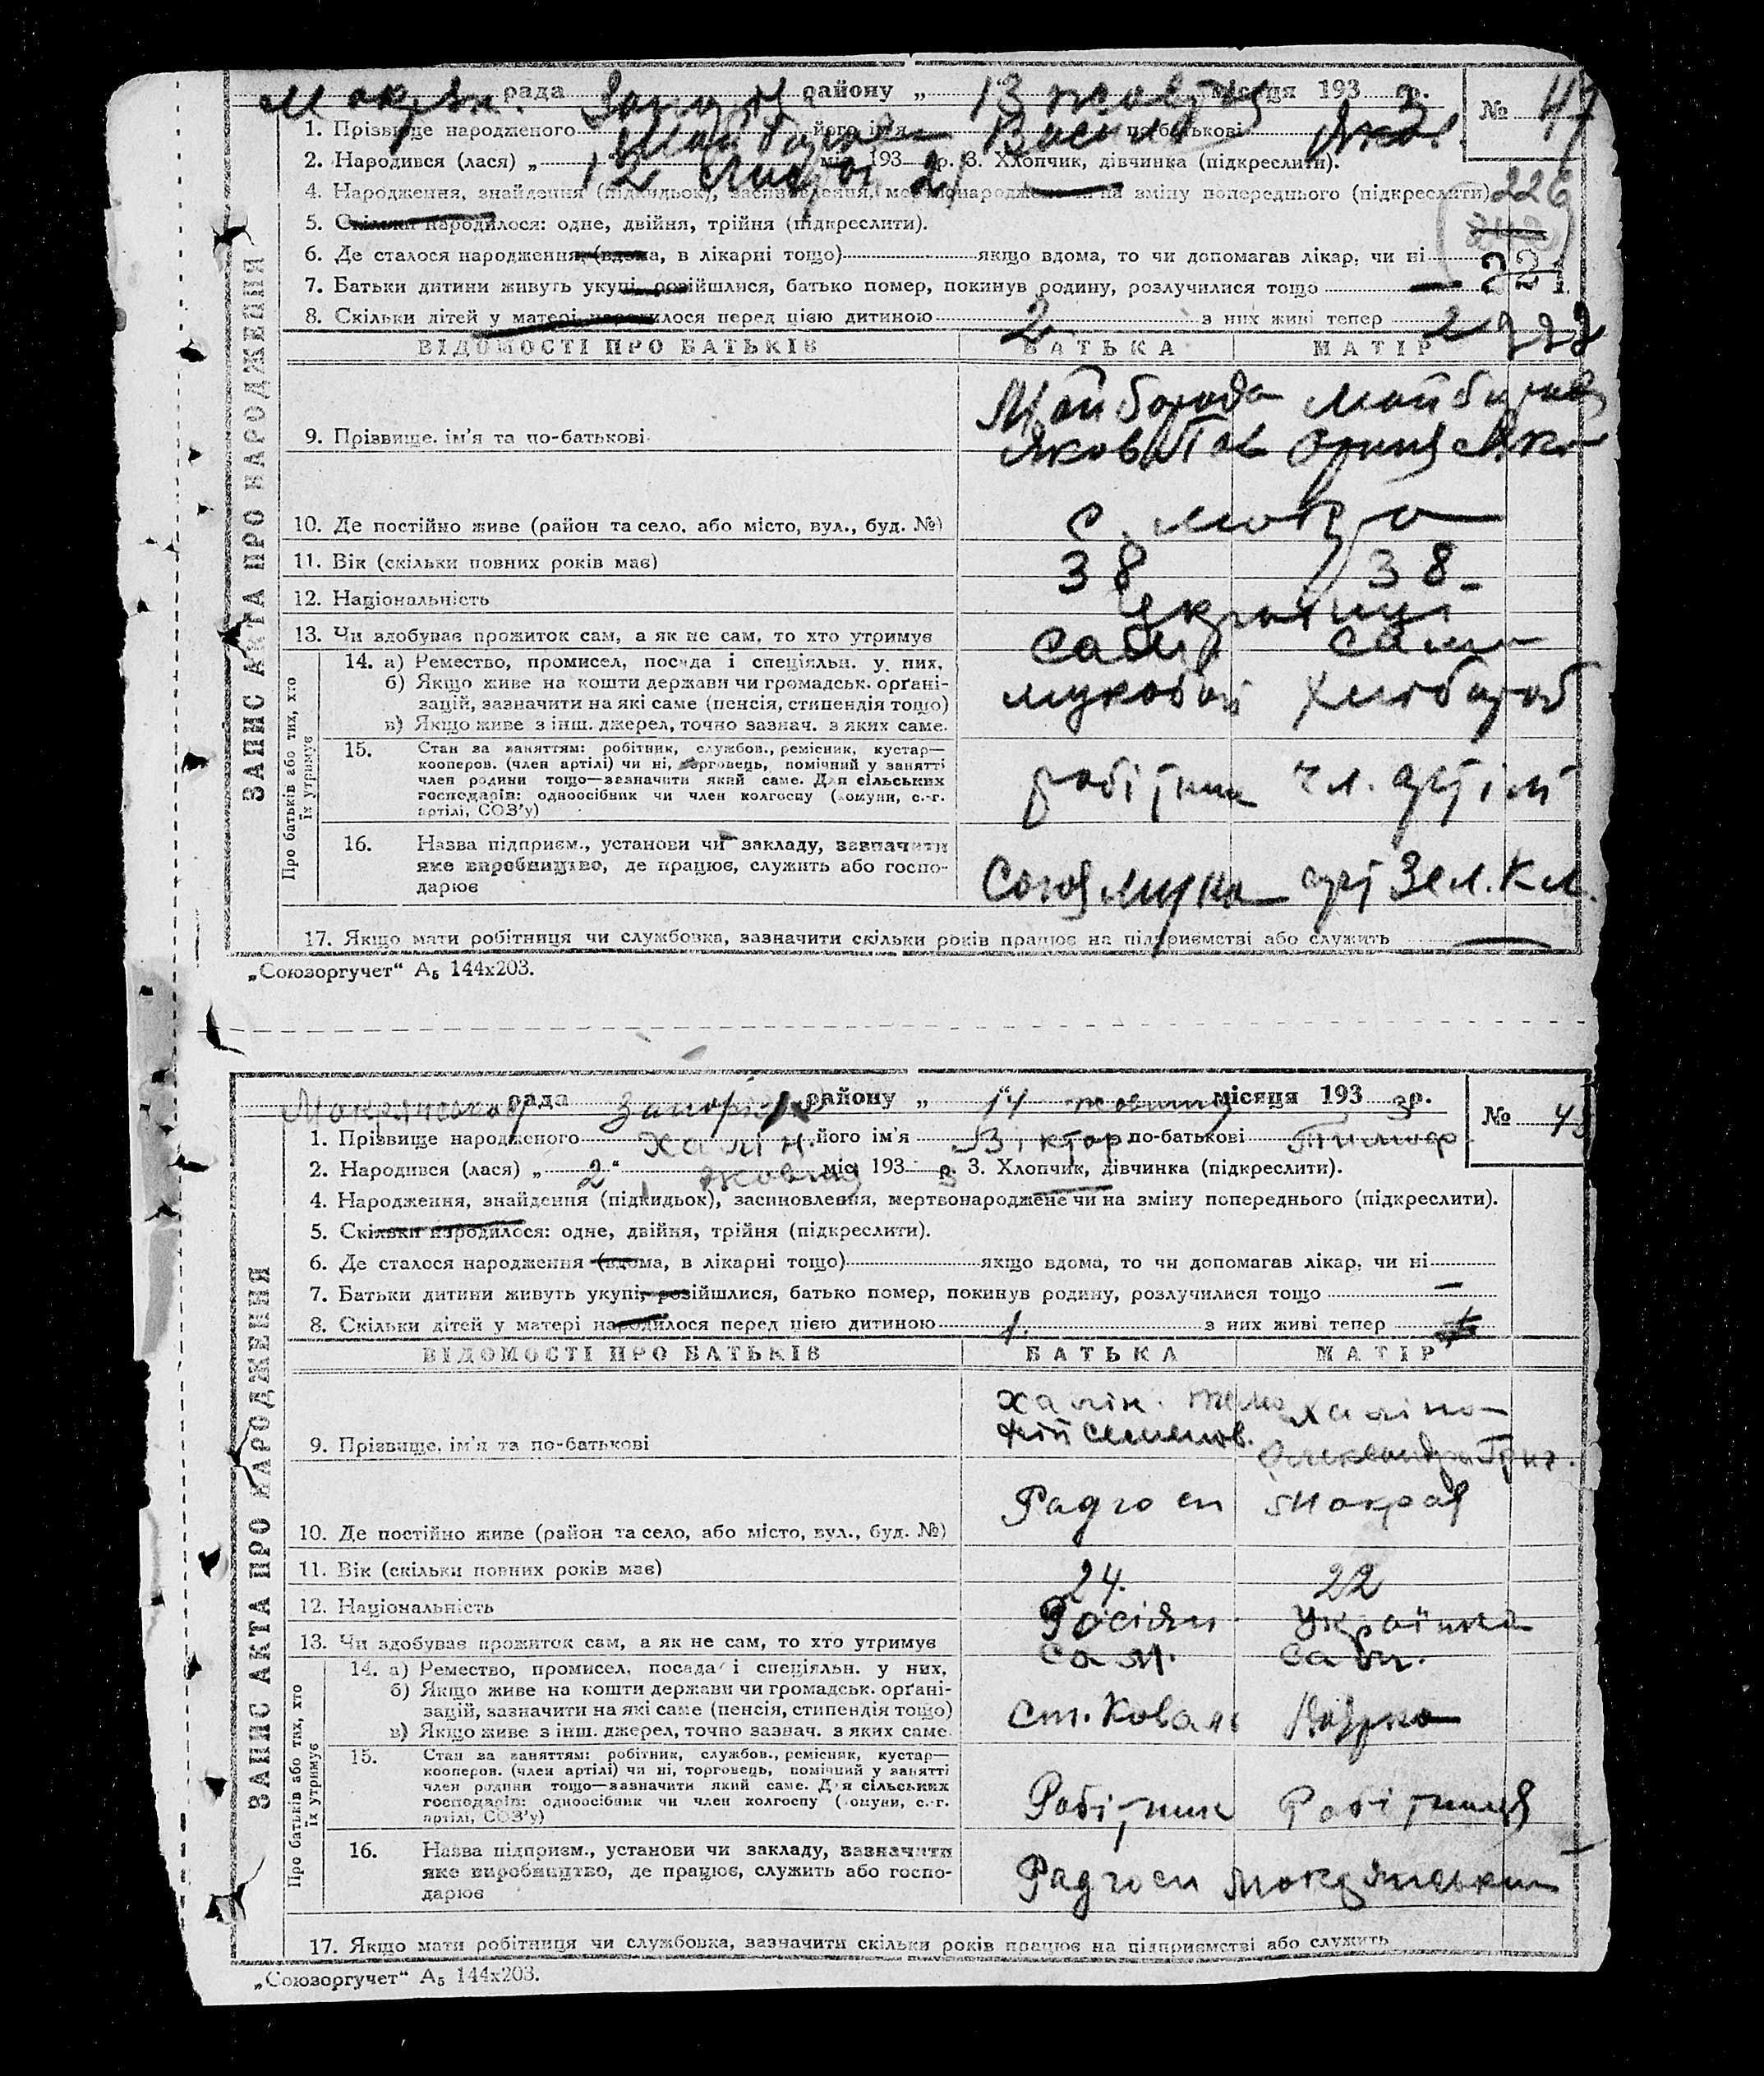 Мокрян. рада Запоріз району „ 13 жовтня місяця 193 3 р. № 47
1. Прізвище народженого його ім'я Василь по-батькові Яков.
2. Народився (лася) „ 12 міс 193 р. 3. Хлопчик, дівчинка (підкреслити).
4. Народження, знайдення (підкидьок), засиновлення, мертвонароджене чи на зміну попереднього (підкреслити) 226
5. Скільки народилося: одне, двійня, трійня (підкреслити).
6. Де сталося народження (вдома, в лікарні тощо) якщо вдома, то чи допомагав лікар, чи ні 221
7. Батьки дитини живуть укупі, розійшлися, батько помер, покинув родину, розлучилися тощо —
8. Скільки дітей у матері народилося перед цією дитиною 2 з них живі тепер 2
ВІДОМОСТІ ПРО БАТЬКІВ БАТЬКА МАТІР
Майборода
9. Прізвище, ім'я та по-батькові Яков
10. Де постійно живе (район та село, або місто, вул., буд. №) с. Мокра
11. Вік (скільки повних років має) 38 38
12. Національність Українці
13. Чи здобуває прожиток сам, а як не сам, то хто утримує сам сама
14. а) Ремество, промисел, посада і спеціяльн. у них,
б) Якщо живе на кошти держави чи громадськ. орґані-
зацій, зазначити на які саме (пенсія, стипендія тощо) хлібороб
в) Якщо живе з інш. джерел, точно зазнач. з яких саме.
15. Стан за заняттям: робітник, службов., ремісник, кустар—
кооперов. (член артілі) чи ні, торговець, помічний у занятті
член родини тощо—зазначити який саме. Для сільських робітник чл. артілі
господарів: одноосібник чи член колгоспу (комуни, с.-г.
артілі, СОЗ'у)
16. Назва підприєм., установи чи закладу, зазначити
яке виробництво, де працює, служить або госпо- Союзмука арт Зел. Кл.
дарює
17. Якщо мати робітниця чи службовка, зазначити скільки років працює на підприємстві або служить —
Про батьків або тих, хто
їх утримує
ЗАПИС АКТА ПРО НАРОДЖЕННЯ
„Союзоргучет“ А₅ 144x203.
Мокрянської рада Запоріз району „ 14 “ жовтня місяця 193 3 р. № 48
1. Прізвище народженого Халін його ім'я Віктор по-батькові Тимоф
2. Народився (лася) „ 2 “ жовтня міс 193 3 р. 3. Хлопчик, дівчинка (підкреслити).
4. Народження, знайдення (підкидьок), засиновлення, мертвонароджене чи на зміну попереднього (підкреслити).
5. Скільки народилося: одне, двійня, трійня (підкреслити).
6. Де сталося народження (вдома, в лікарні тощо) якщо вдома, то чи допомагав лікар, чи ні
7. Батьки дитини живуть укупі, розійшлися, батько помер, покинув родину, розлучилися тощо —
8. Скільки дітей у матері народилося перед цією дитиною 1. з них живі тепер
ВІДОМОСТІ ПРО БАТЬКІВ БАТЬКА МАТІР
Халін. Тимо Халіна
9. Прізвище, ім'я та по-батькові фій Семенов. Олександра Григ.
Радгосп Мокрая
10. Де постійно живе (район та село, або місто, вул., буд. №)
11. Вік (скільки повних років має) 24. 22
12. Національність Росіян Українка
13. Чи здобуває прожиток сам, а як не сам, то хто утримує сам. сама.
14. а) Ремество, промисел, посада і спеціяльн. у них,
б) Якщо живе на кошти держави чи громадськ. орґані-
зацій, зазначити на які саме (пенсія, стипендія тощо) ст. Коваль Доярка
в) Якщо живе з інш. джерел, точно зазнач. з яких саме
15. Стан за заняттям: робітник, службов., ремісник, кустар—
кооперов. (член артілі) чи ні, торговець, помічний у занятті
член родини тощо—зазначити який саме. Для сільських
господарів: одноосібник чи член колгоспу (комуни, с.-г. Робітник Робітниця
артілі, СОЗ'у)
16. Назва підприєм., установи чи закладу, зазначити
яке виробництво, де працює, служить або госпо- Радгосп Мокрянський
дарює
17. Якщо мати робітниця чи службовка, зазначити скільки років працює на підприємстві або служить
Про батьків або тих, хто
їх утримує
ЗАПИС АКТА ПРО НАРОДЖЕННЯ
„Союзоргучет“ А₅ 144x203.